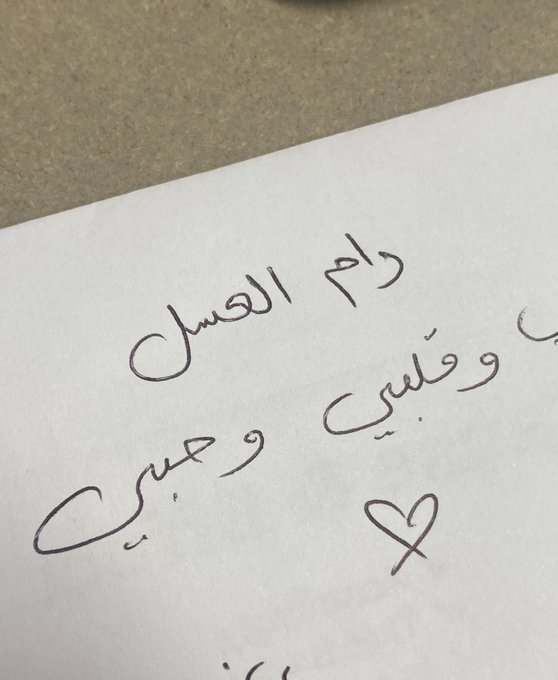 دام العسل
وقلبي وحبي